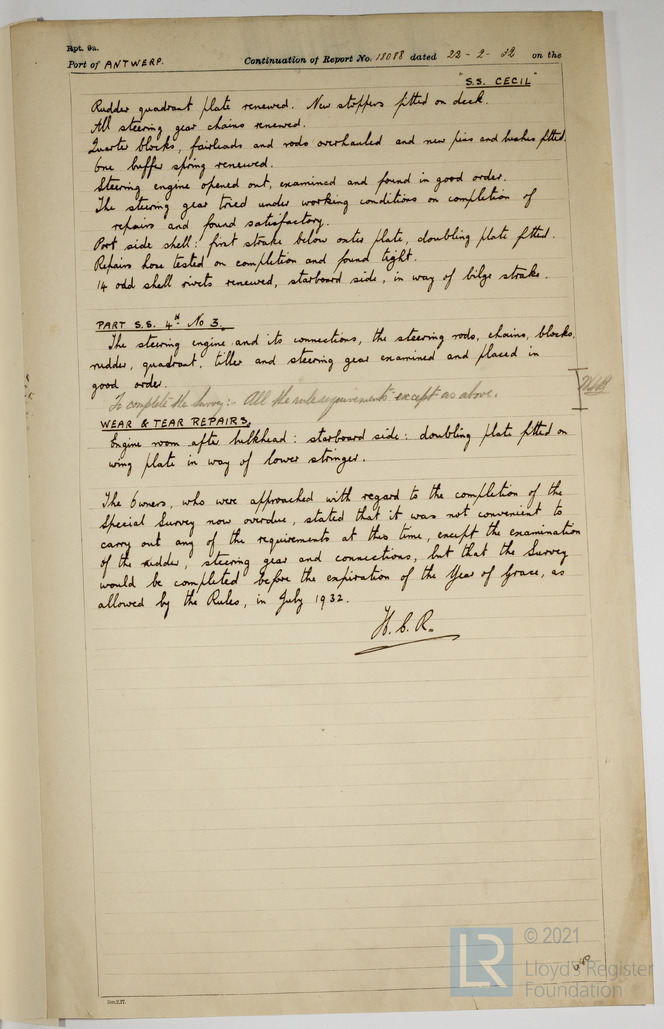 Rpt. 9a.
Port of ANTWERP. Continuation of Report No. 18088 dated 22-2-32 on the
"S.S. CECIL"
Rudder quadrant plate renewed. New stoppers fitted on deck.
All steering gear chains renewed.
Quarter blocks, fairleads and rods overhauled and new pins and bushes fitted.
One buffer spring renewed.
Steering engine opened out, examined and found in good order.
The steering gear tried under working conditions on completion of
repairs and found satisfactory.
Port side shell: first strake below outer plate, doubling plate fitted.
Repairs hose tested on completion and found tight.
14 odd shell rivets renewed, starboard side, in way of bilge strake.
PART S.S. 4th No 3.
The steering engine and its connections, the steering rods, chains, blocks,
rudder, quadrant, tiller and steering gear examined and placed in
good order.
To complete the Survey:- All the rule requirements except as above.
WEAR & TEAR REPAIRS.
Engine room after bulkhead: starboard side: doubling plate fitted on
wing plate in way of lower stringer.
The Owners, who were approached with regard to the completion of the
Special Survey now overdue, stated that it was not convenient to
carry out any of the requirements at this time, except the examination
of the rudder, steering gear and connections, but that the Survey
would be completed before the expiration of the Year of Grace, as
allowed by the Rules, in July 1932.
H.C.R.
© 2021
LR
Lloyd's Register
Foundation